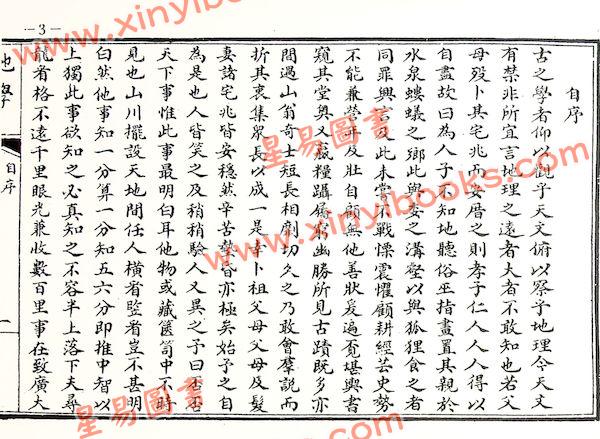 自序
古之學者仰以觀乎天文俯以察乎地理今天文
有禁非所宜言地理之遠者大者不敢知也若父
母歿卜其宅兆而安厝之則孝子仁人人人得以
自盡故曰為人子不知地聽俗巫指畫置其親於
水泉螻蟻之鄉此與委之溝壑以與狐狸食之者
同罪興言及此未嘗不戰慄震懼顧耕經芸史勢
不能兼營並及壯自顧無他善狀爰遍覓堪輿書
窺其堂奧又嬴糧躡屩窮幽勝所見古蹟既多亦
間遇山翁奇士短長相劘切久之乃敢會羣說而
折其衷集眾長以成一是幸卜祖父母父母及髮
妻諸宅兆皆安穩然辛苦勞瘁亦極矣始予之自
為是也人皆笑之及稍稍驗人又異之予曰否否
天下事惟此事最明白耳他物或藏篋笥中不時
見也山川擺設天地間任人橫看豎看豈不甚明
白然他事知一分算一分知五六分即推中智以
上獨此事欲知之必真知之不容半上落下夫尋
龍看格不遠千里眼光兼收數百里事在致廣大
地學
自序
一
-3-
www.xinyibooks.com
星易圖書
www.xinyibooks.com
星易圖書
www.xinyibooks.com
星易圖書